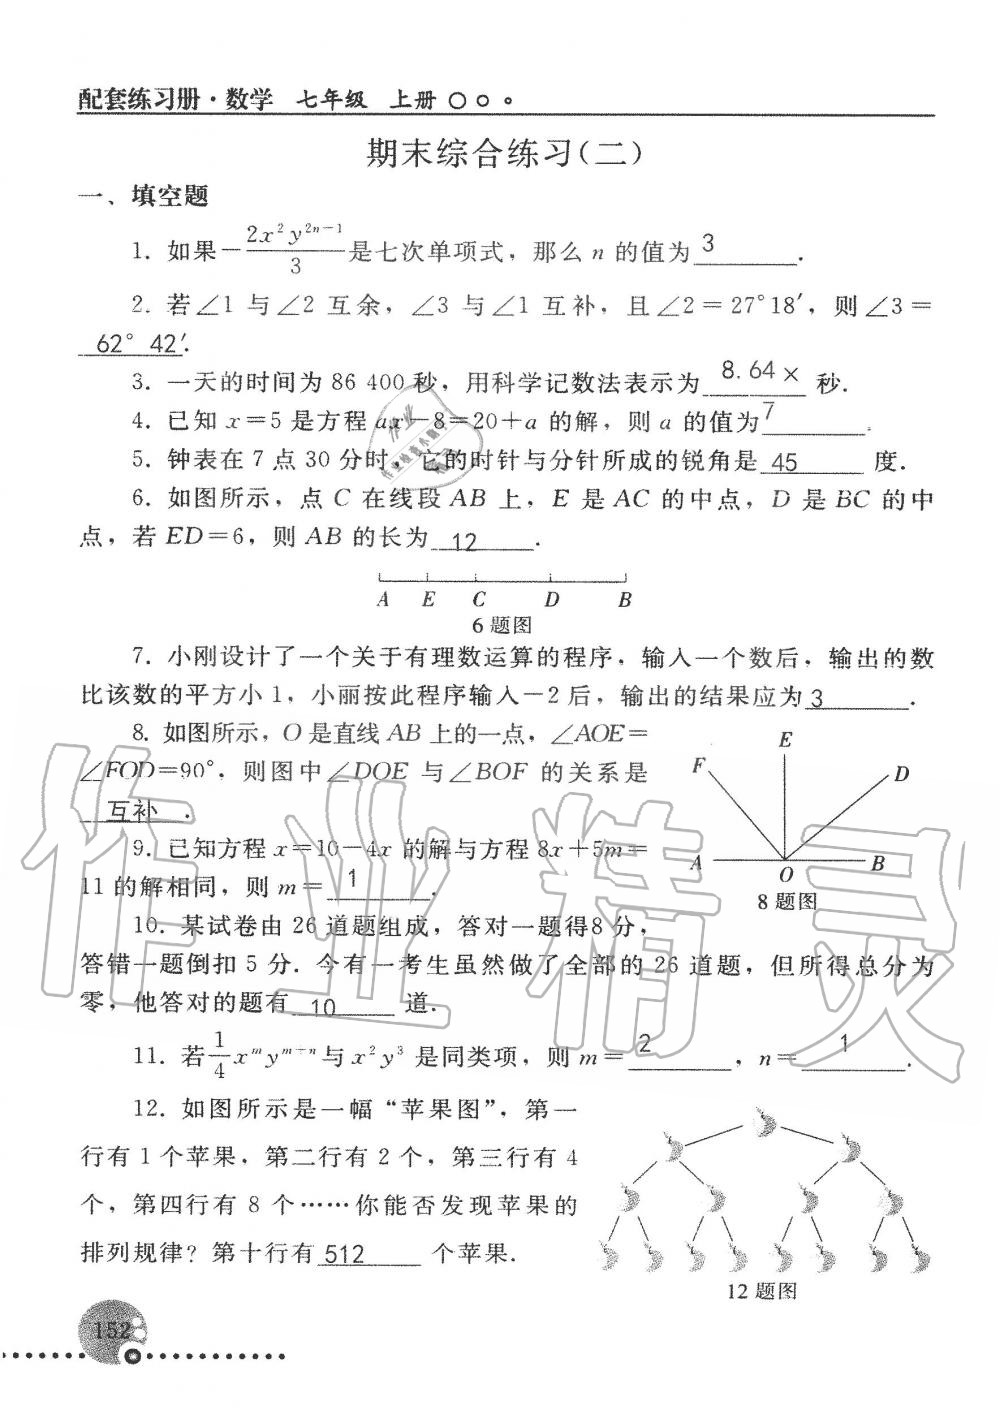 配套练习册·数学 七年级 上册
期末综合练习(二)
一、填空题
1. 如果-\frac{2x²y^{2n-1}}{3}是七次单项式，那么 n 的值为 3 .
2. 若∠1 与∠2 互余，∠3 与∠1 互补，且∠2=27°18′，则∠3=
62° 42′.
3. 一天的时间为 86 400 秒，用科学记数法表示为 8.64× 秒.
4. 已知 x=5 是方程 ax-8=20+a 的解，则 a 的值为 7 .
5. 钟表在 7 点 30 分时，它的时针与分针所成的锐角是 45 度.
6. 如图所示，点 C 在线段 AB 上，E 是 AC 的中点，D 是 BC 的中
点，若 ED=6，则 AB 的长为 12 .
A E C D B
6 题图
7. 小刚设计了一个关于有理数运算的程序，输入一个数后，输出的数
比该数的平方小 1，小丽按此程序输入-2 后，输出的结果应为 3 .
8. 如图所示，O 是直线 AB 上的一点，∠AOE=
∠FOD=90°，则图中∠DOE 与∠BOF 的关系是
互补 .
E
F D
A O B
8 题图
9. 已知方程 x=10-4x 的解与方程 8x+5m=
11 的解相同，则 m= 1 .
10. 某试卷由 26 道题组成，答对一题得8 分，
答错一题倒扣 5 分. 今有一考生虽然做了全部的 26 道题，但所得总分为
零，他答对的题有 10 道.
11. 若\frac{1}{4}x^m y^{m+n}与 x²y³ 是同类项，则 m= 2 ，n= 1 .
12. 如图所示是一幅“苹果图”，第一
行有 1 个苹果，第二行有 2 个，第三行有 4
个，第四行有 8 个……你能否发现苹果的
排列规律？第十行有 512 个苹果.
12 题图
152
作业精灵